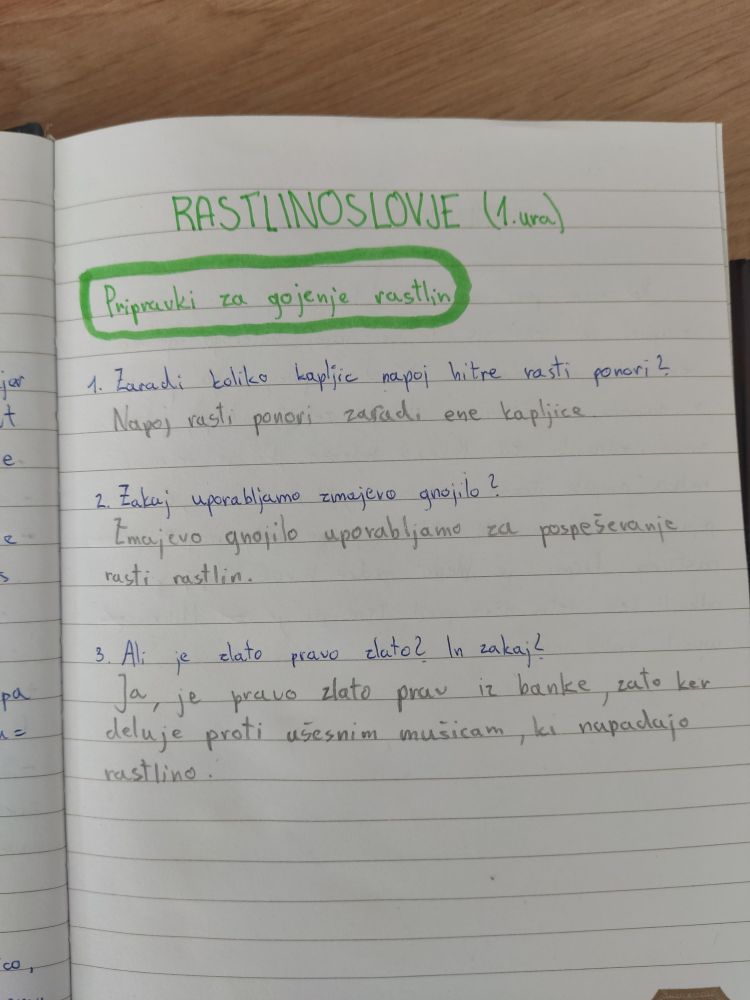 RASTLINOSLOVJE (1.ura)
Pripravki za gojenje rastlin
1. Zaradi koliko kapljic napoj hitre rasti ponori?
Napoj rasti ponori zaradi ene kapljice.
2. Zakaj uporabljamo zmajevo gnojilo?
Zmajevo gnojilo uporabljamo za pospeševanje
rasti rastlin.
3. Ali je zlato pravo zlato? In zakaj?
Ja, je pravo zlato prav iz banke, zato ker
deluje proti ušesnim mušicam, ki napadajo
rastlino.